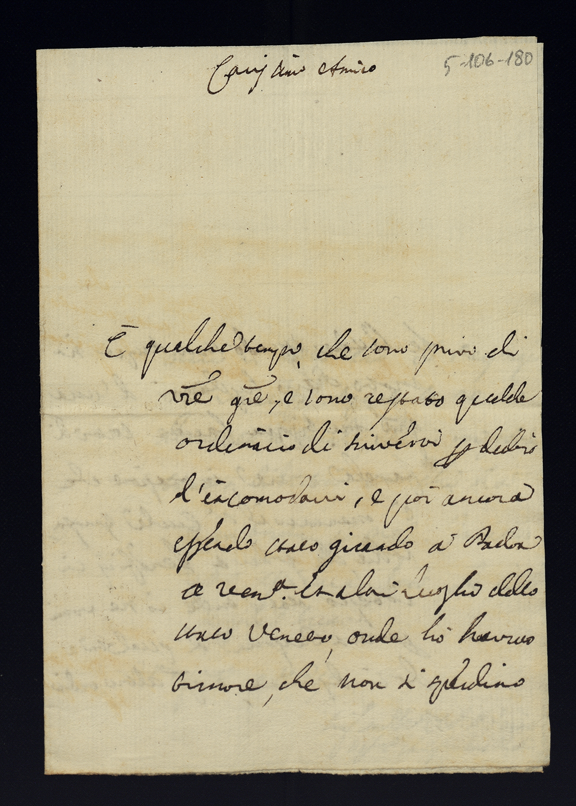 Cariss.mo Amico
5-106-180
È qualche tempo, che sono privo di
vre gre, e sono restato qualche
ordinario di scrivervi p dubio
d'incomodarvi, e poi ancora
essendo stato girando à Padoa
e altri luoghi dello
stato Veneto, onde hò havuto
timore, che non si perdino